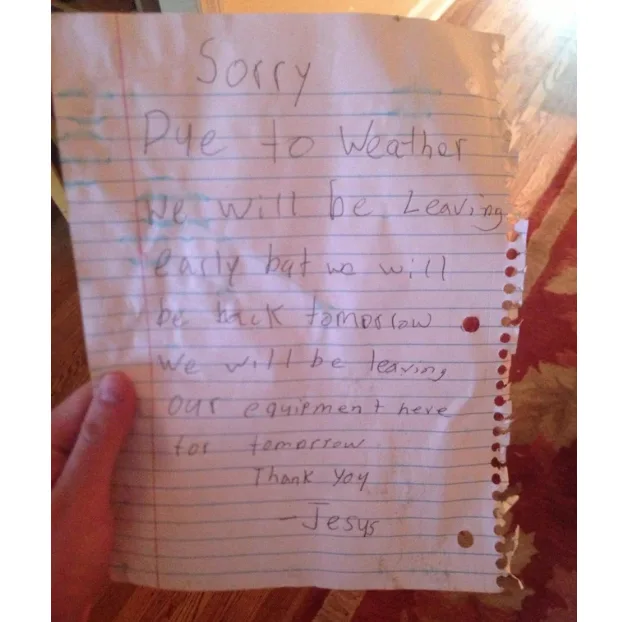 Sorry
Due to Weather
We will be Leaving
early but we will
be back tomorrow
We will be leaving
our equipment here
for tomorrow
Thank You
- Jesus